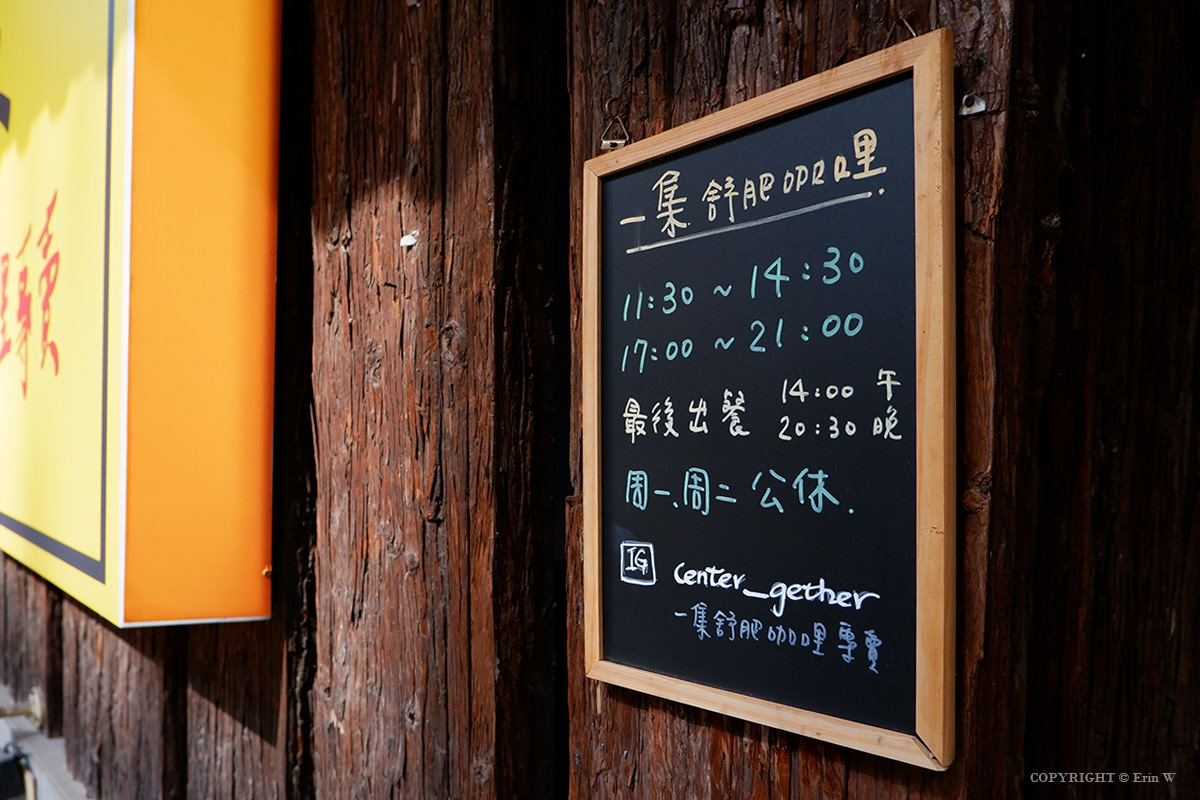 專賣
一集 舒肥咖哩
11:30 ~ 14:30
17:00 ~ 21:00
最後出餐 14:00 午
20:30 晚
周一、周二 公休.
IG center_gether
一集舒肥咖哩專賣
COPYRIGHT © Erin W